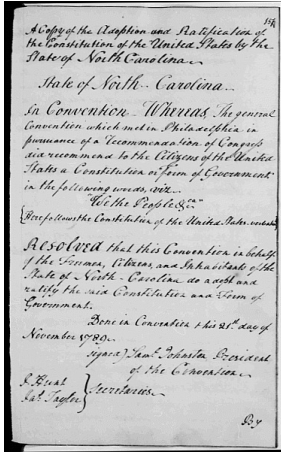 A Copy of the Adoption and Ratification of
the Constitution of the United States by the
State of North Carolina
State of North-Carolina
In Convention Whereas, The general
Convention which met in Philadelphia in
pursuance of a recommendation of Congress
did recommend to the Citizens of the United
States a Constitution or form of Government
in the following words, viz.
"We the People &ca"
(Here follows the Constitution of the United States
Resolved that this Convention in behalf
of the Freemen, Citizens, and Inhabitants of the
State of North-Carolina do adopt and
ratify the said Constitution and Form of
Government.
Done in Convention this 21st day of
November 1789.
signed) Saml. Johnston President
of the Convention
J Hunt
Jas. Taylor } Secretaries
By